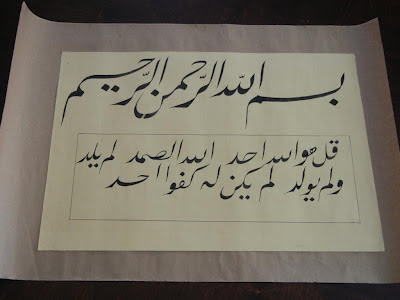 بسم اللّه الرّحمن الرّحيم
قل هو الله احد الله الصمد لم يلد
ولم يولد لم يكن له كفوا احد